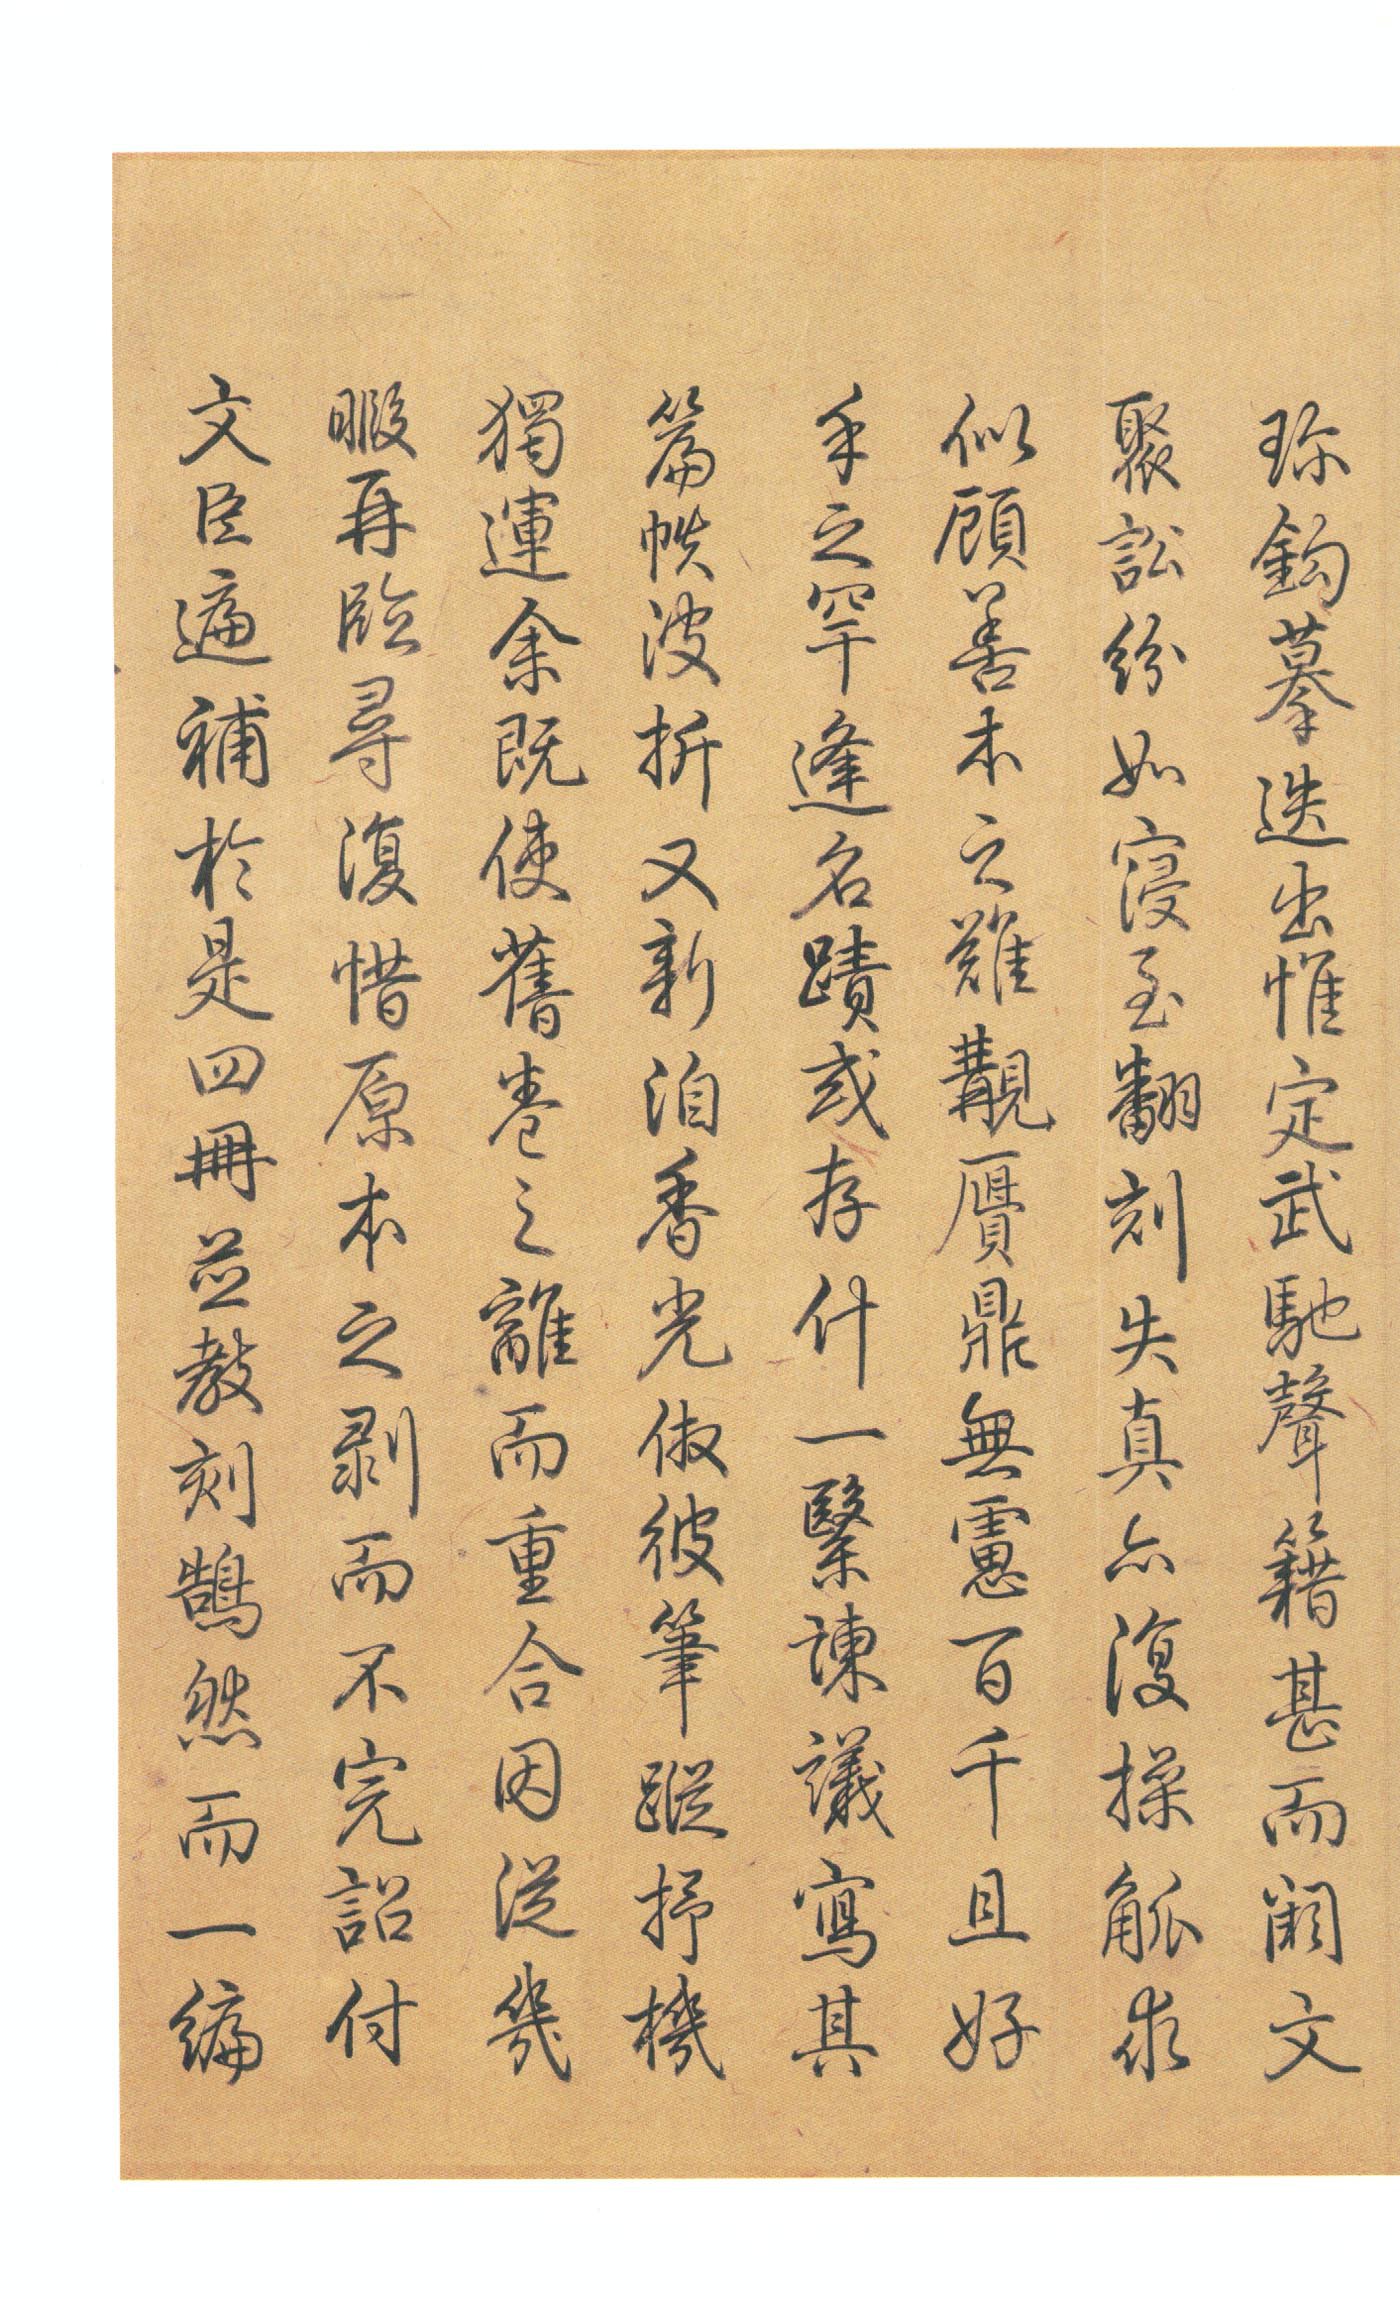 珎鉤摹迭出惟定武馳聲籍甚而闕文
聚訟紛如寖至翻刻失真亦復操觚求
似顧善本之難覯贋鼎無慮百千且好
手之罕逢名蹟或存什一緊諫議寫其
篇帙波折又新洎香光倣彼筆蹤抒機
獨運余既使舊卷之離而重合因從幾
暇再臨尋復惜原本之剥而不完詔付
文臣遍補於是四冊並教刻鵠然而一編